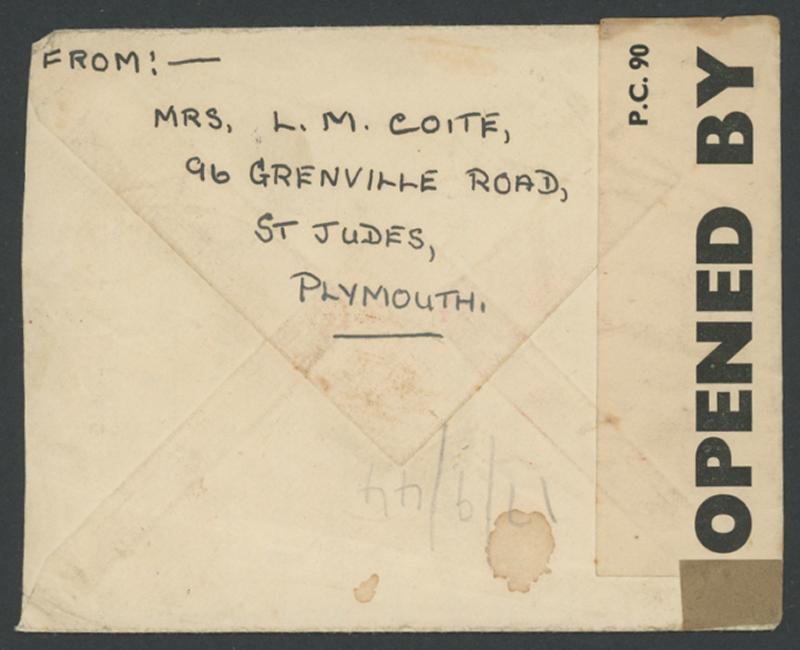 FROM:—
MRS. L. M. COITE,
96 GRENVILLE ROAD,
ST JUDES,
PLYMOUTH.
P.C. 90
OPENED BY